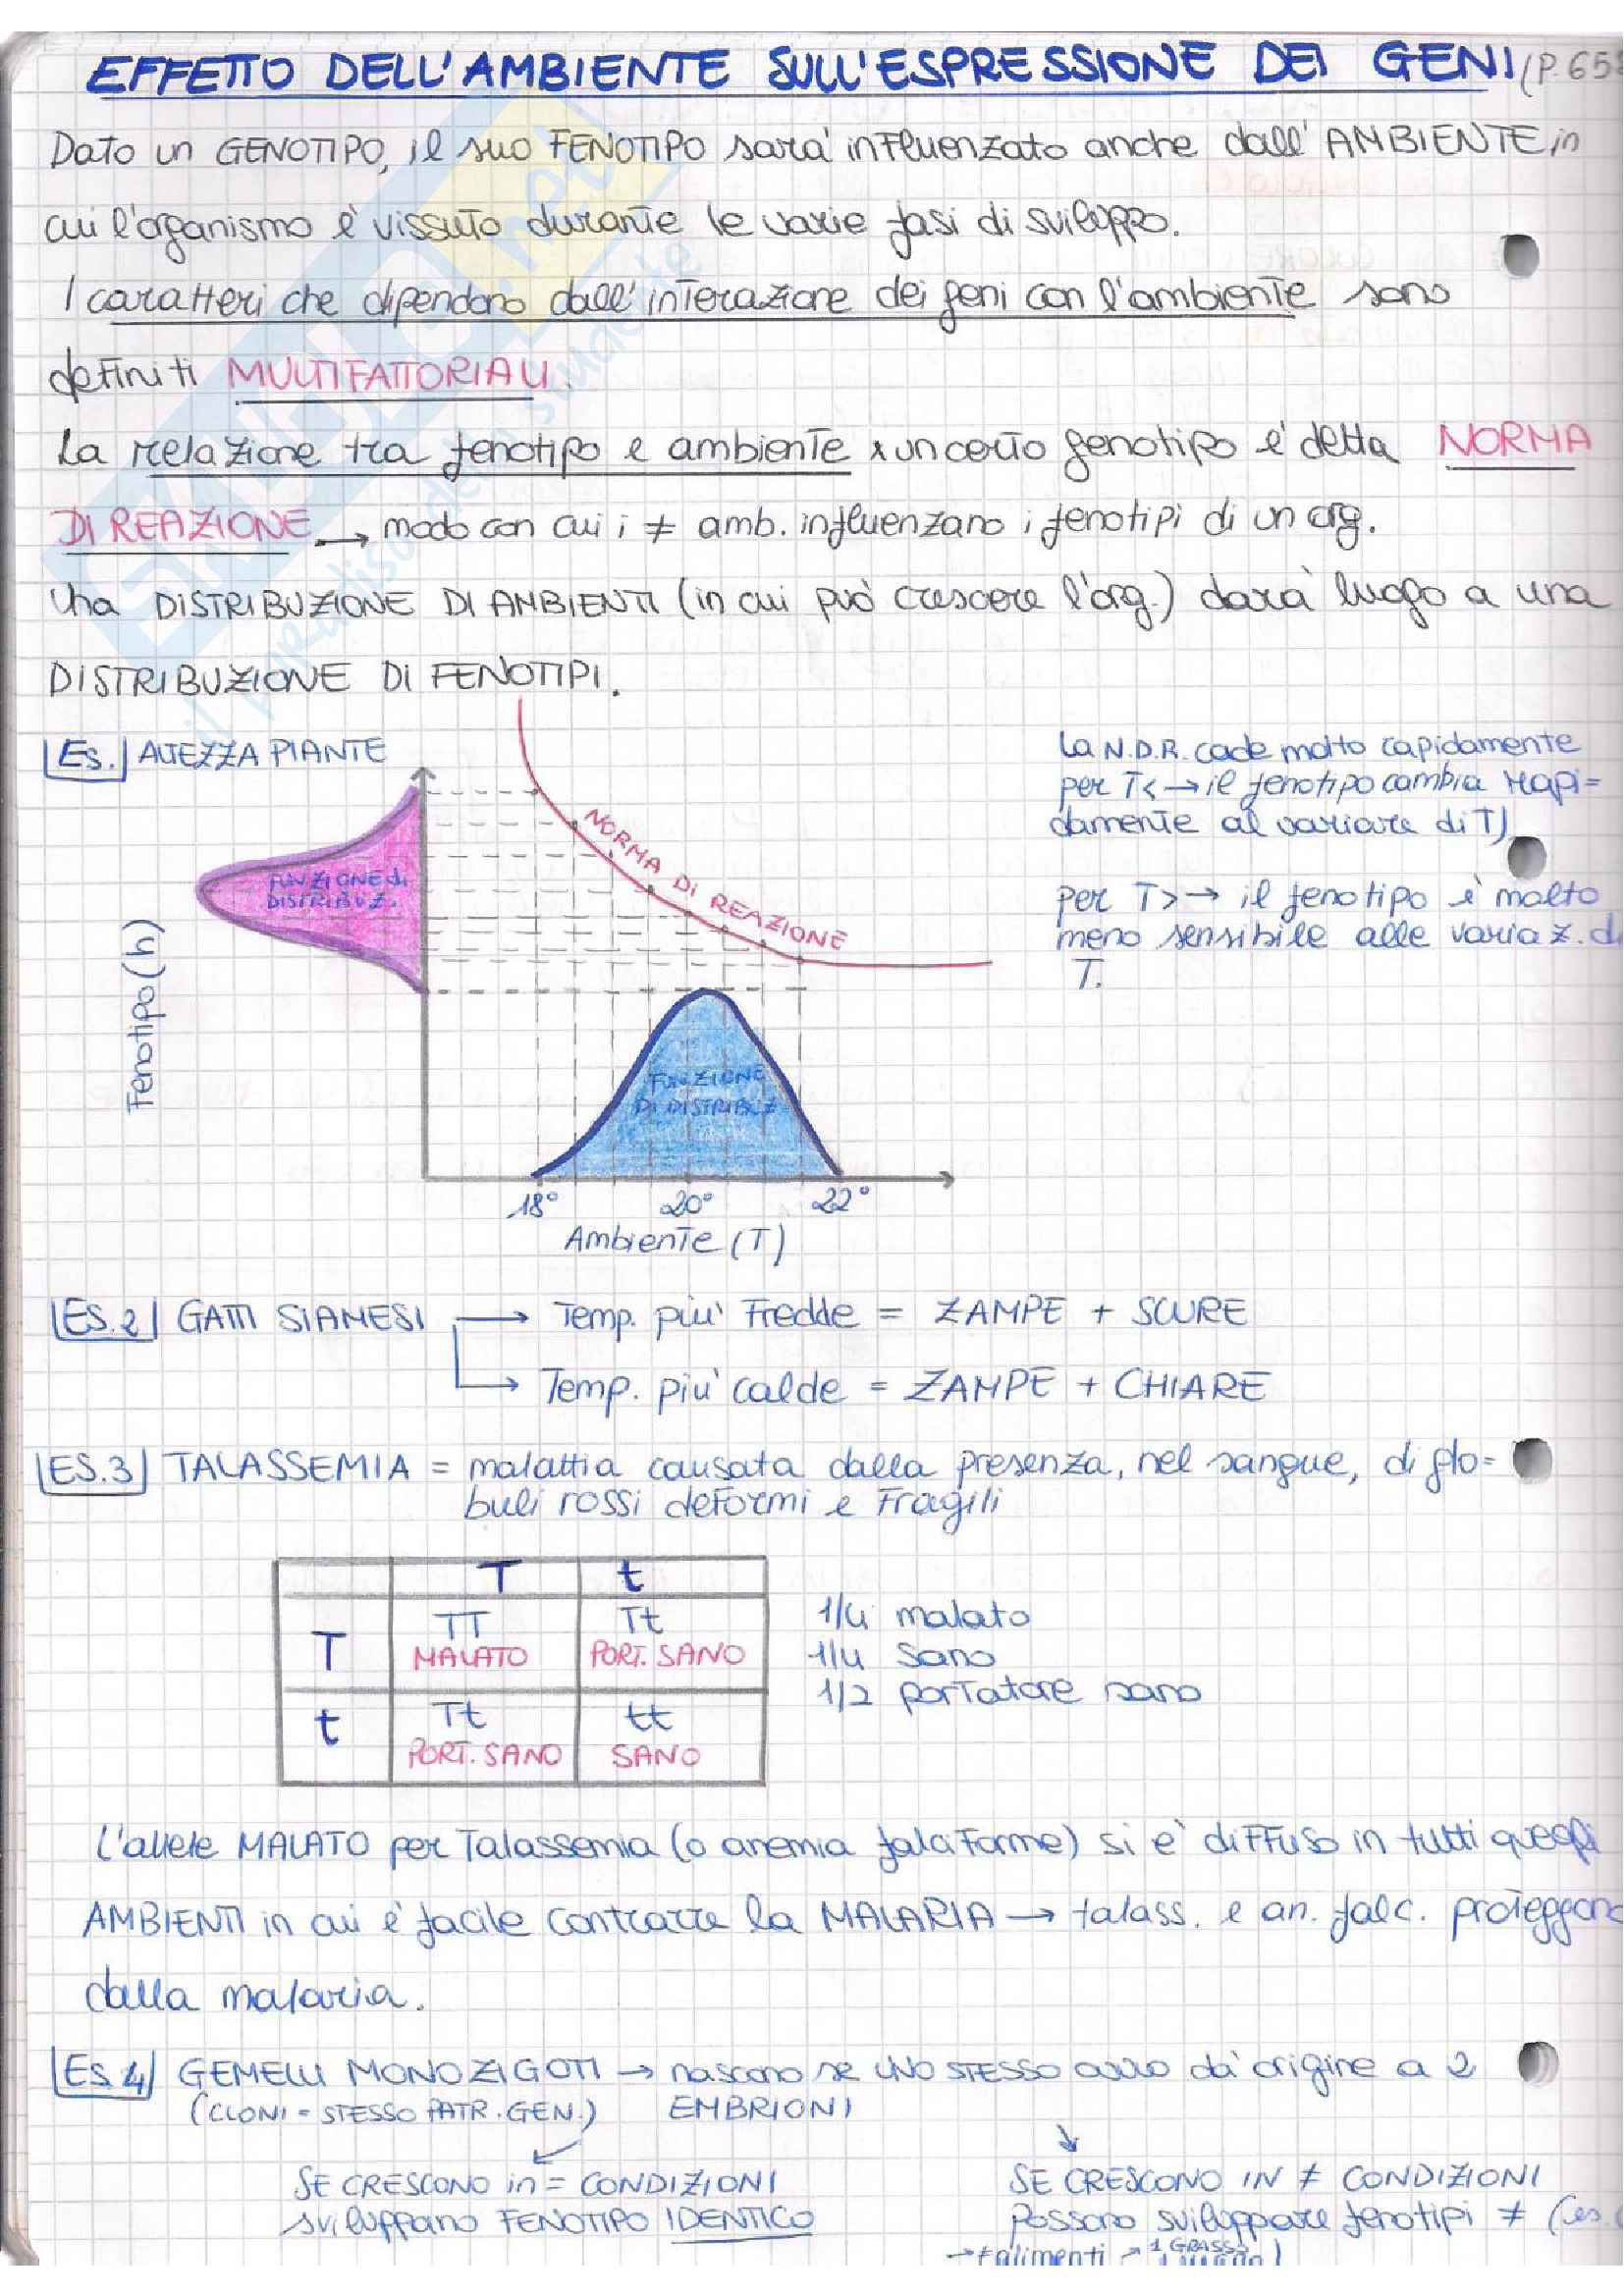 EFFETTO DELL'AMBIENTE SULL'ESPRESSIONE DEI GENI (P. 65
Dato un GENOTIPO, il suo FENOTIPO sarà influenzato anche dall'AMBIENTE in
cui l'organismo è vissuto durante le varie fasi di sviluppo.
I caratteri che dipendono dall'interazione dei geni con l'ambiente sono
definiti MULTIFATTORIALI.
La relazione tra fenotipo e ambiente x un certo genotipo è detta NORMA
DI REAZIONE → modo con cui i ≠ amb. influenzano i fenotipi di un org.
Una DISTRIBUZIONE DI AMBIENTI (in cui può crescere l'org.) darà luogo a una
DISTRIBUZIONE DI FENOTIPI.
Es. ALTEZZA PIANTE
La N.D.R. cade molto rapidamente
per T< → il fenotipo cambia rapi=
damente al variare di T)
per T> → il fenotipo è molto
meno sensibile alle variaz. d
T.
NORMA DI REAZIONE
FUNZIONE di
DISTRIBUZ.
Fenotipo (h)
FUNZIONE
DI DISTRIBUZ
18° 20° 22°
Ambiente (T)
ES.2 GATTI SIAMESI → Temp. più fredde = ZAMPE + SCURE
→ Temp. più calde = ZAMPE + CHIARE
ES.3 TALASSEMIA = malattia causata dalla presenza, nel sangue, di glo=
buli rossi deformi e fragili
T t
T TT Tt
MALATO PORT. SANO
t Tt tt
PORT. SANO SANO
1/4 malato
1/4 sano
1/2 portatore sano
L'allele MALATO per Talassemia (o anemia falciforme) si è diffuso in tutti quegli
AMBIENTI in cui è facile contrarre la MALARIA → talass. e an. falc. proteggono
dalla malaria.
ES.4 GEMELLI MONOZIGOTI → nascono se UNO STESSO ovulo dà origine a 2
(CLONI = STESSO PATR. GEN.) EMBRIONI
SE CRESCONO in = CONDIZIONI
sviluppano FENOTIPO IDENTICO
SE CRESCONO IN ≠ CONDIZIONI
Possono sviluppare fenotipi ≠ (es.
→ ≠ alimenti → 1 GRASSO